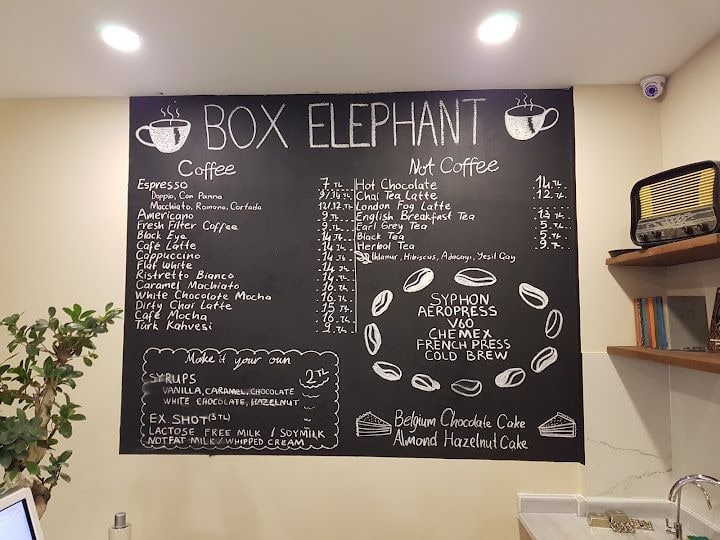 BOX ELEPHANT
Coffee
Espresso 7 TL
Doppio, Con Panna
Macchiato, Romano, Cortado
Americano 9 TL
Fresh Filter Coffee 9 TL
Black Eye 14 TL
Café Latte 14 TL
Cappuccino 14 TL
Flat White 14 TL
Ristretto Bianco 14 TL
Caramel Machiato 16 TL
White Chocolate Mocha 16 TL
Dirty Chai Latte 15 TL
Café Mocha 16 TL
Türk Kahvesi 9 TL
Make it your own
SYRUPS 2 TL
VANILLA, CARAMEL, CHOCOLATE
WHITE CHOCOLATE, HAZELNUT
EX SHOT (3 TL)
LACTOSE FREE MILK / SOYMILK
NOTFAT MILK / WHIPPED CREAM
Not Coffee
Hot Chocolate 14 TL
Chai Tea Latte 12 TL
London Fog Latte
English Breakfast Tea 13 TL
Earl Grey Tea 5 TL
Black Tea 5 TL
Herbal Tea 9 TL
Ihlamur, Hibiscus, Adaçayı, Yeşil Çay
SYPHON
AEROPRESS
V60
CHEMEX
FRENCH PRESS
COLD BREW
Belgium Chocolate Cake
Almond Hazelnut Cake